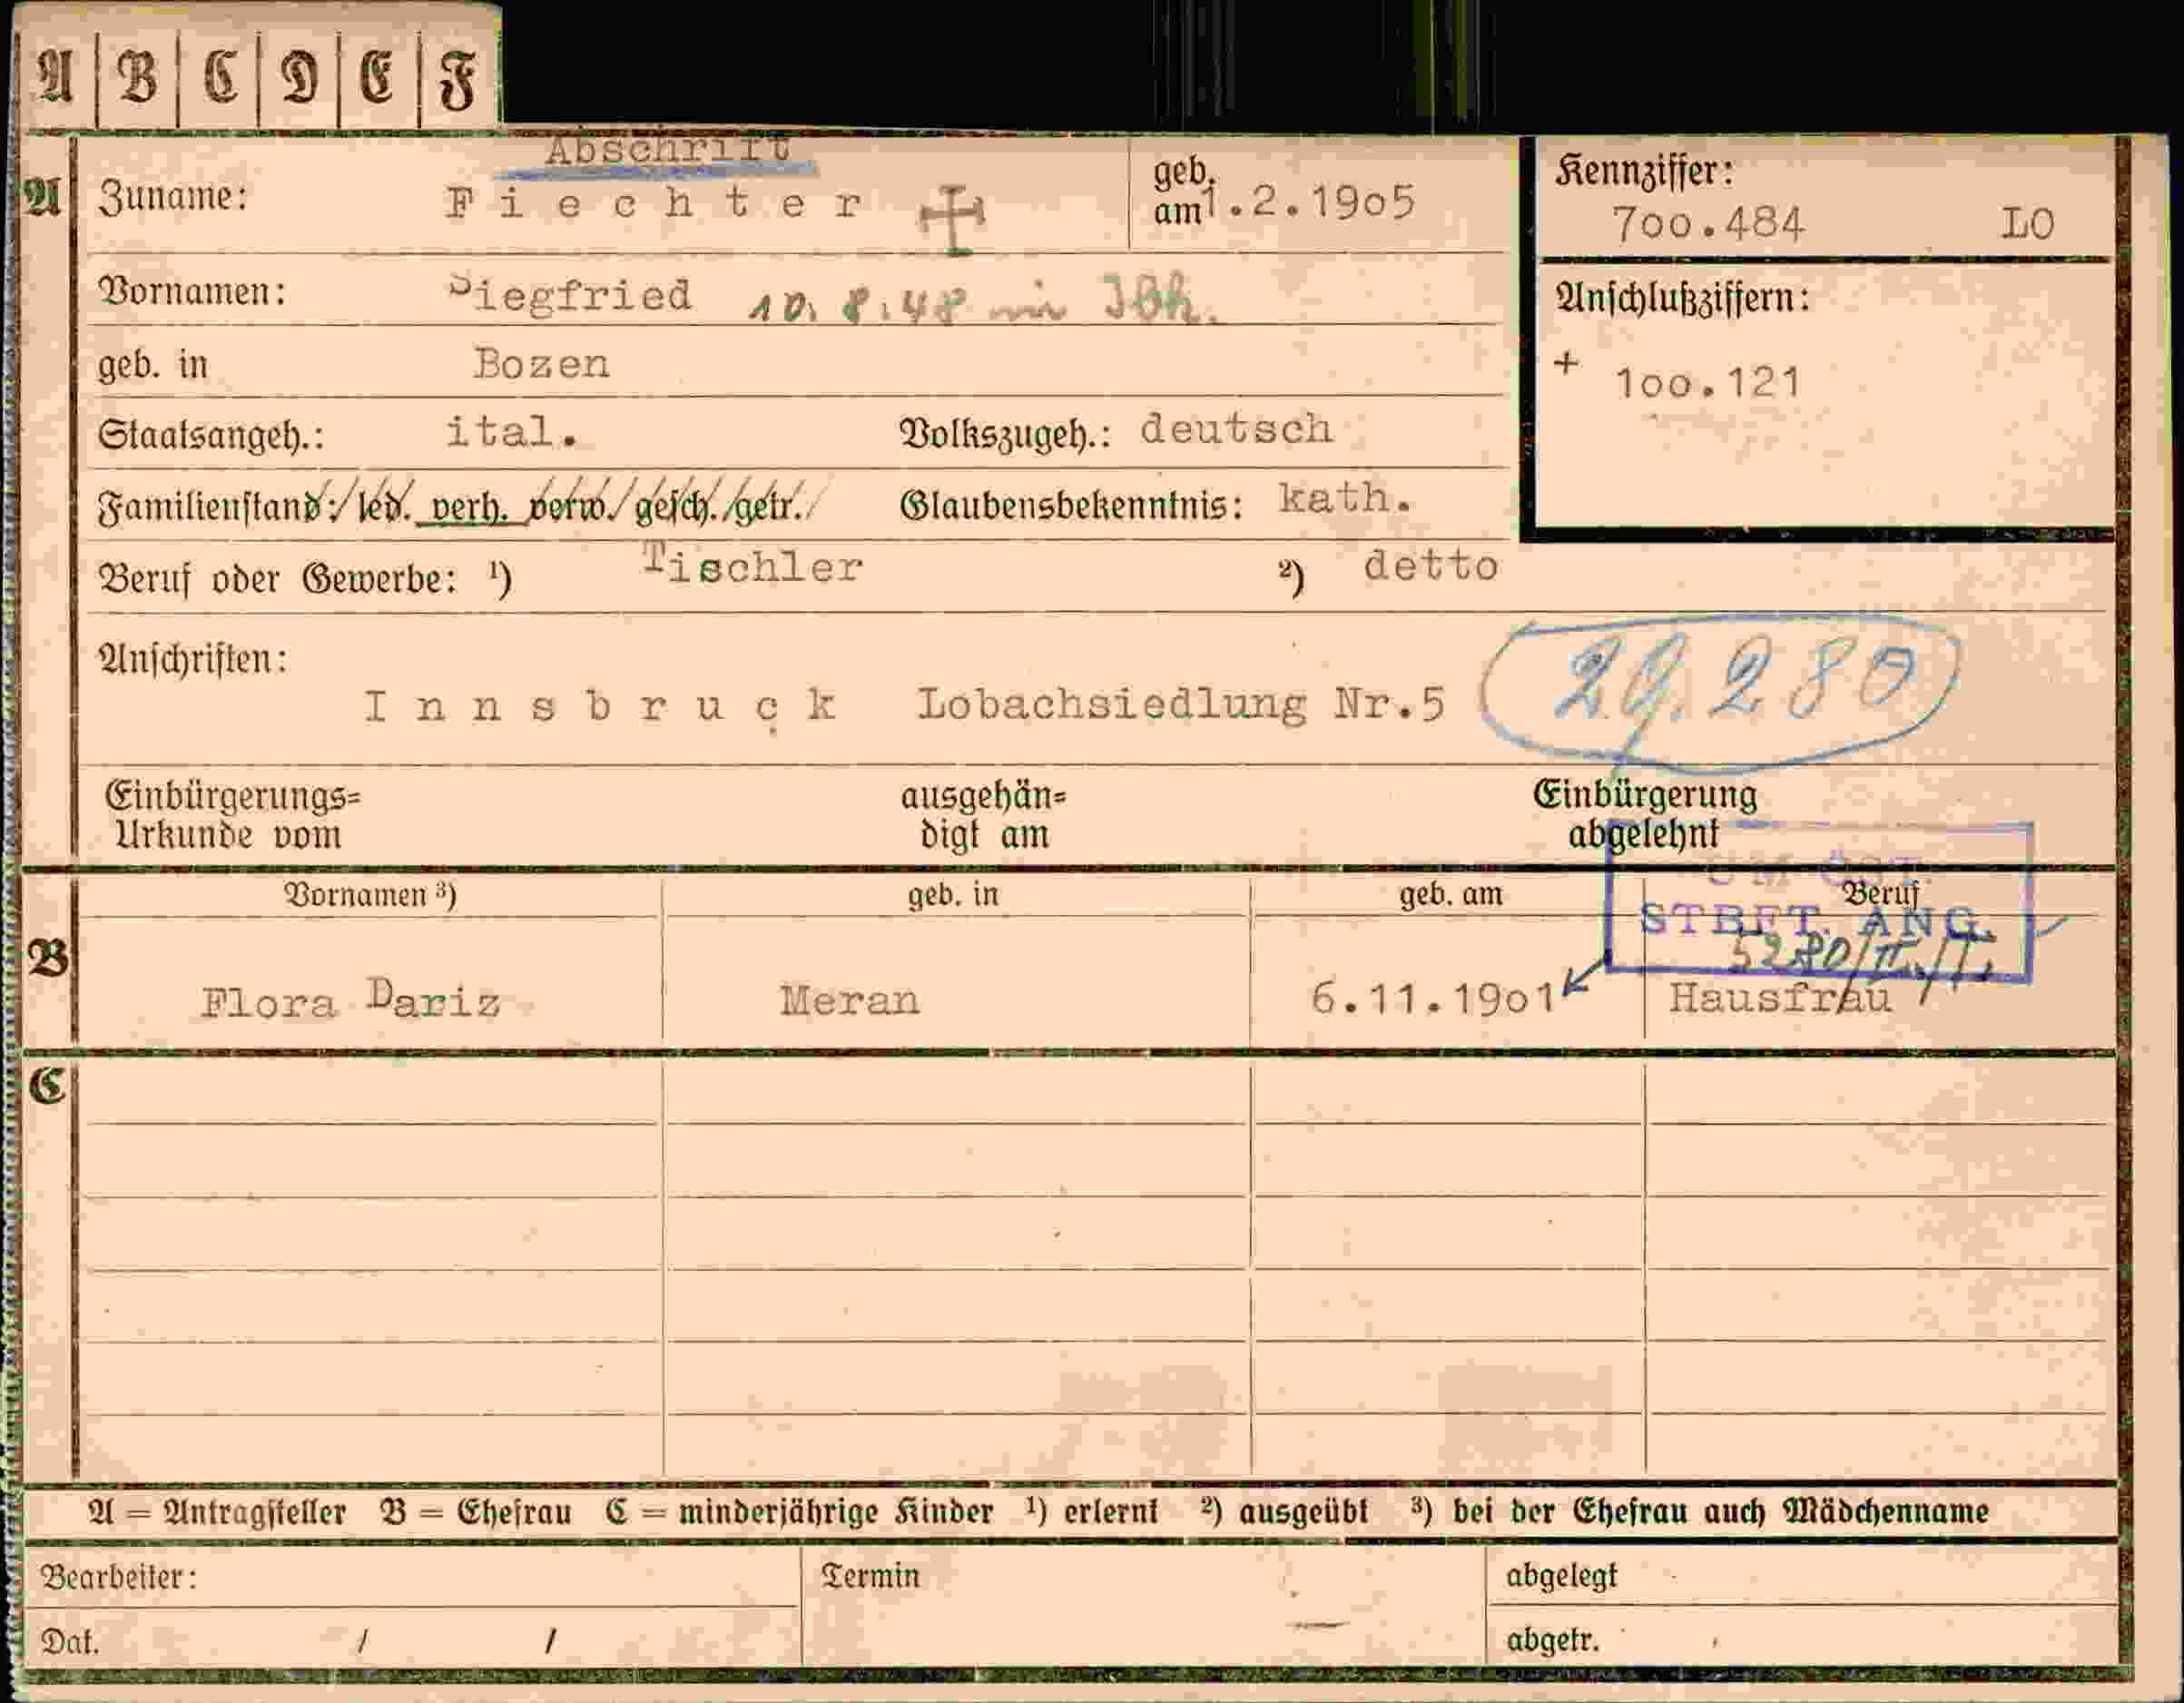 A B C D E F
Abschrift
A Zuname: Fiechter geb. am 1.2.1905
Kennziffer:
700.484 LO
Vornamen: Siegfried 10.8.48 in Ibk.
Anschlußziffern:
+ 100.121
geb. in Bozen
Staatsangeh.: ital. Volkszugeh.: deutsch
Familienstand: led. verh. verw. gesch. getr. Glaubensbekenntnis: kath.
Beruf oder Gewerbe: ¹) Tischler ²) detto
Anschriften:
Innsbruck Lobachsiedlung Nr.5 29.280
Einbürgerungs= ausgehän= Einbürgerung
Urkunde vom digt am abgelehnt
UM ÖST.
Vornamen ³) geb. in geb. am Beruf
STBFT. ANG.
B
Flora Dariz Meran 6.11.1901 Hausfrau
C
A = Antragsteller B = Ehefrau C = minderjährige Kinder ¹) erlernt ²) ausgeübt ³) bei der Ehefrau auch Mädchenname
Bearbeiter: Termin abgelegt
Dat. / / abgetr.